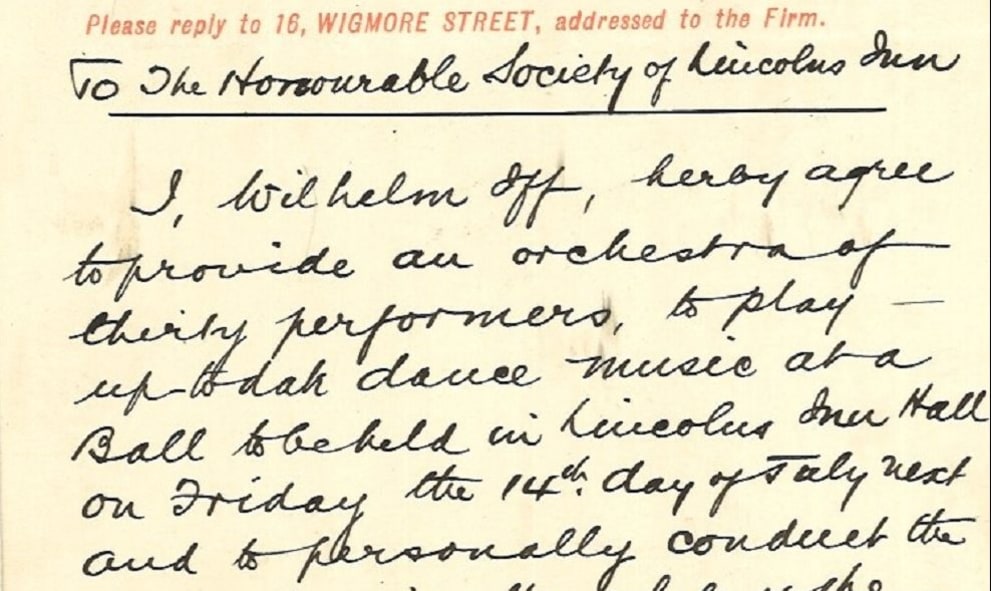 Please reply to 16, WIGMORE STREET, addressed to the Firm.
To The Honourable Society of Lincolns Inn
I, Wilhelm Iff, herby agree
to provide an orchestra of
thirty performers, to play —
up-to date dance music at a
Ball to be held in Lincolns Inn Hall
on Friday the 14th. day of July next
and to personally conduct the
the